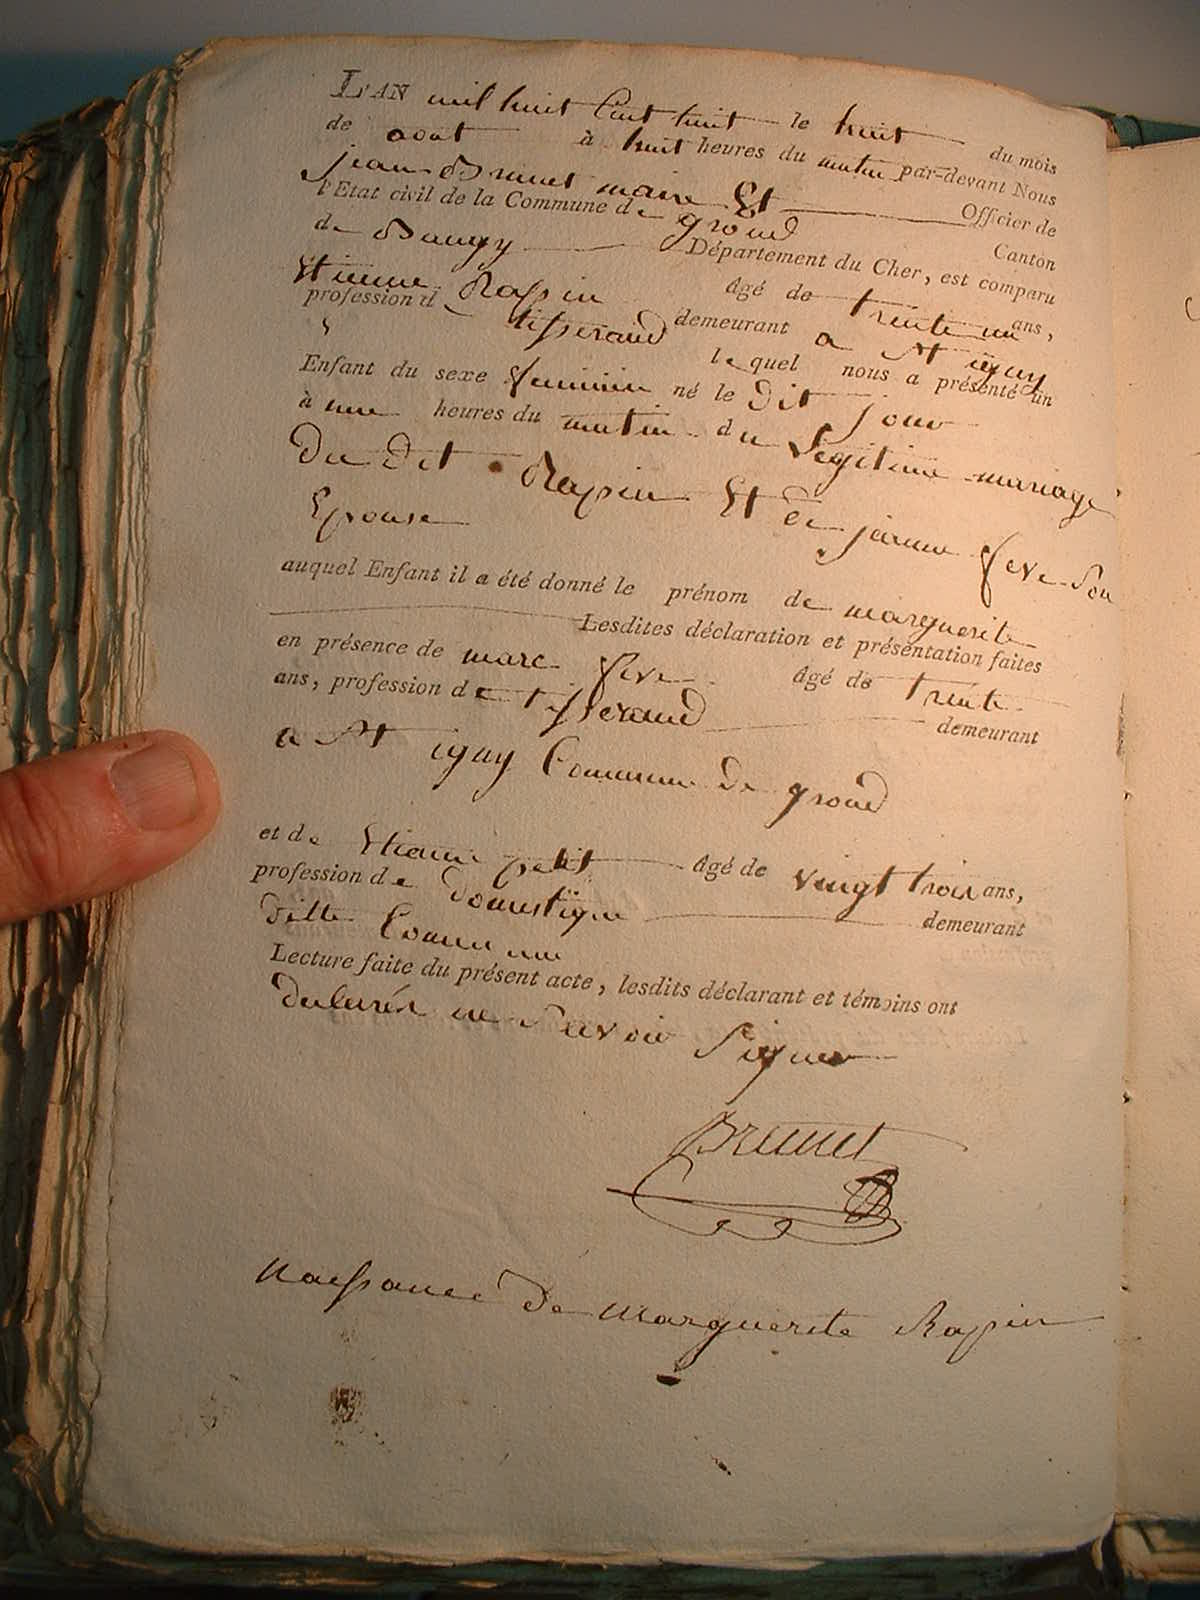 L'AN mil huit Cent huit le huit du mois
de aout à huit heures du matin par-devant Nous
jean Brunet maire Et Officier de
l'Etat civil de la Commune de groud Canton
de Baugy Département du Cher, est comparu
Etienne Rapin âgé de trente un ans,
profession d tisserand demeurant a St iguy
lequel nous a présenté un
Enfant du sexe feminin né le dit jour
à une heures du matin du Legitime mariage
du dit Rapin Et de jeanne feve Son
Epouse
auquel Enfant il a été donné le prénom de marguerite
Lesdites déclaration et présentation faites
en présence de marc feve âgé de trente
ans, profession de tisserand demeurant
a St iguy Commune de groud
et de Etienne petit âgé de vingt trois ans,
profession de domestique demeurant
ditte Commune
Lecture faite du présent acte, lesdits déclarant et témoins ont
declarés ne Savoir Signer
Brunet
Naissance de Marguerite Rapin